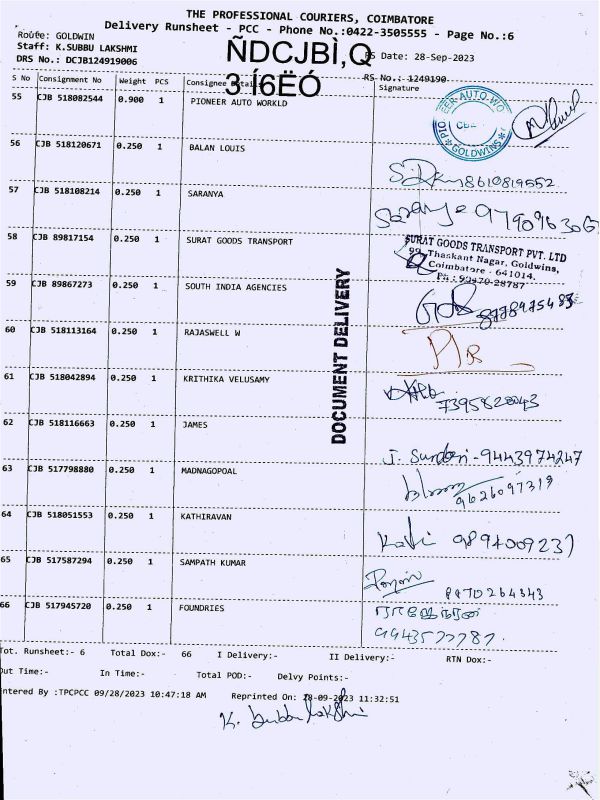 THE PROFESSIONAL COURIERS, COIMBATORE
Delivery Runsheet - PCC - Phone No.:0422-3505555 - Page No.:6
Route: GOLDWIN
Staff: K.SUBBU LAKSHMI
DRS No.: DCJB124919006
ÑDCJBÌ,Q
3 Í6ËÓ
RS Date: 28-Sep-2023
RS No.: 1249190
S No Consignment No Weight PCS Consignee Details Signature
55 CJB 518082544 0.900 1 PIONEER AUTO WORKLD
56 CJB 518120671 0.250 1 BALAN LOUIS
8610819552
57 CJB 518108214 0.250 1 SARANYA
Saranya
58 CJB 89817154 0.250 1 SURAT GOODS TRANSPORT
SURAT GOODS TRANSPORT PVT. LTD
99, Thaskant Nagar, Goldwins,
Coimbatore - 641014.
59 CJB 89867273 0.250 1 SOUTH INDIA AGENCIES
60 CJB 518113164 0.250 1 RAJASWELL W
61 CJB 518042894 0.250 1 KRITHIKA VELUSAMY
7395820043
62 CJB 518116663 0.250 1 JAMES
J. Sundari - 9443974247
63 CJB 517798880 0.250 1 MADNAGOPAL
9626097319
64 CJB 518051553 0.250 1 KATHIRAVAN
65 CJB 517587294 0.250 1 SAMPATH KUMAR
66 CJB 517945720 0.250 1 FOUNDRIES
DOCUMENT DELIVERY
Tot. Runsheet:- 6 Total Dox:- 66 I Delivery:- II Delivery:- RTN Dox:-
Out Time:- In Time:- Total POD:- Delvy Points:-
Entered By :TPCPCC 09/28/2023 10:47:18 AM Reprinted On: 28-09-2023 11:32:51
K. Subbu lakshmi